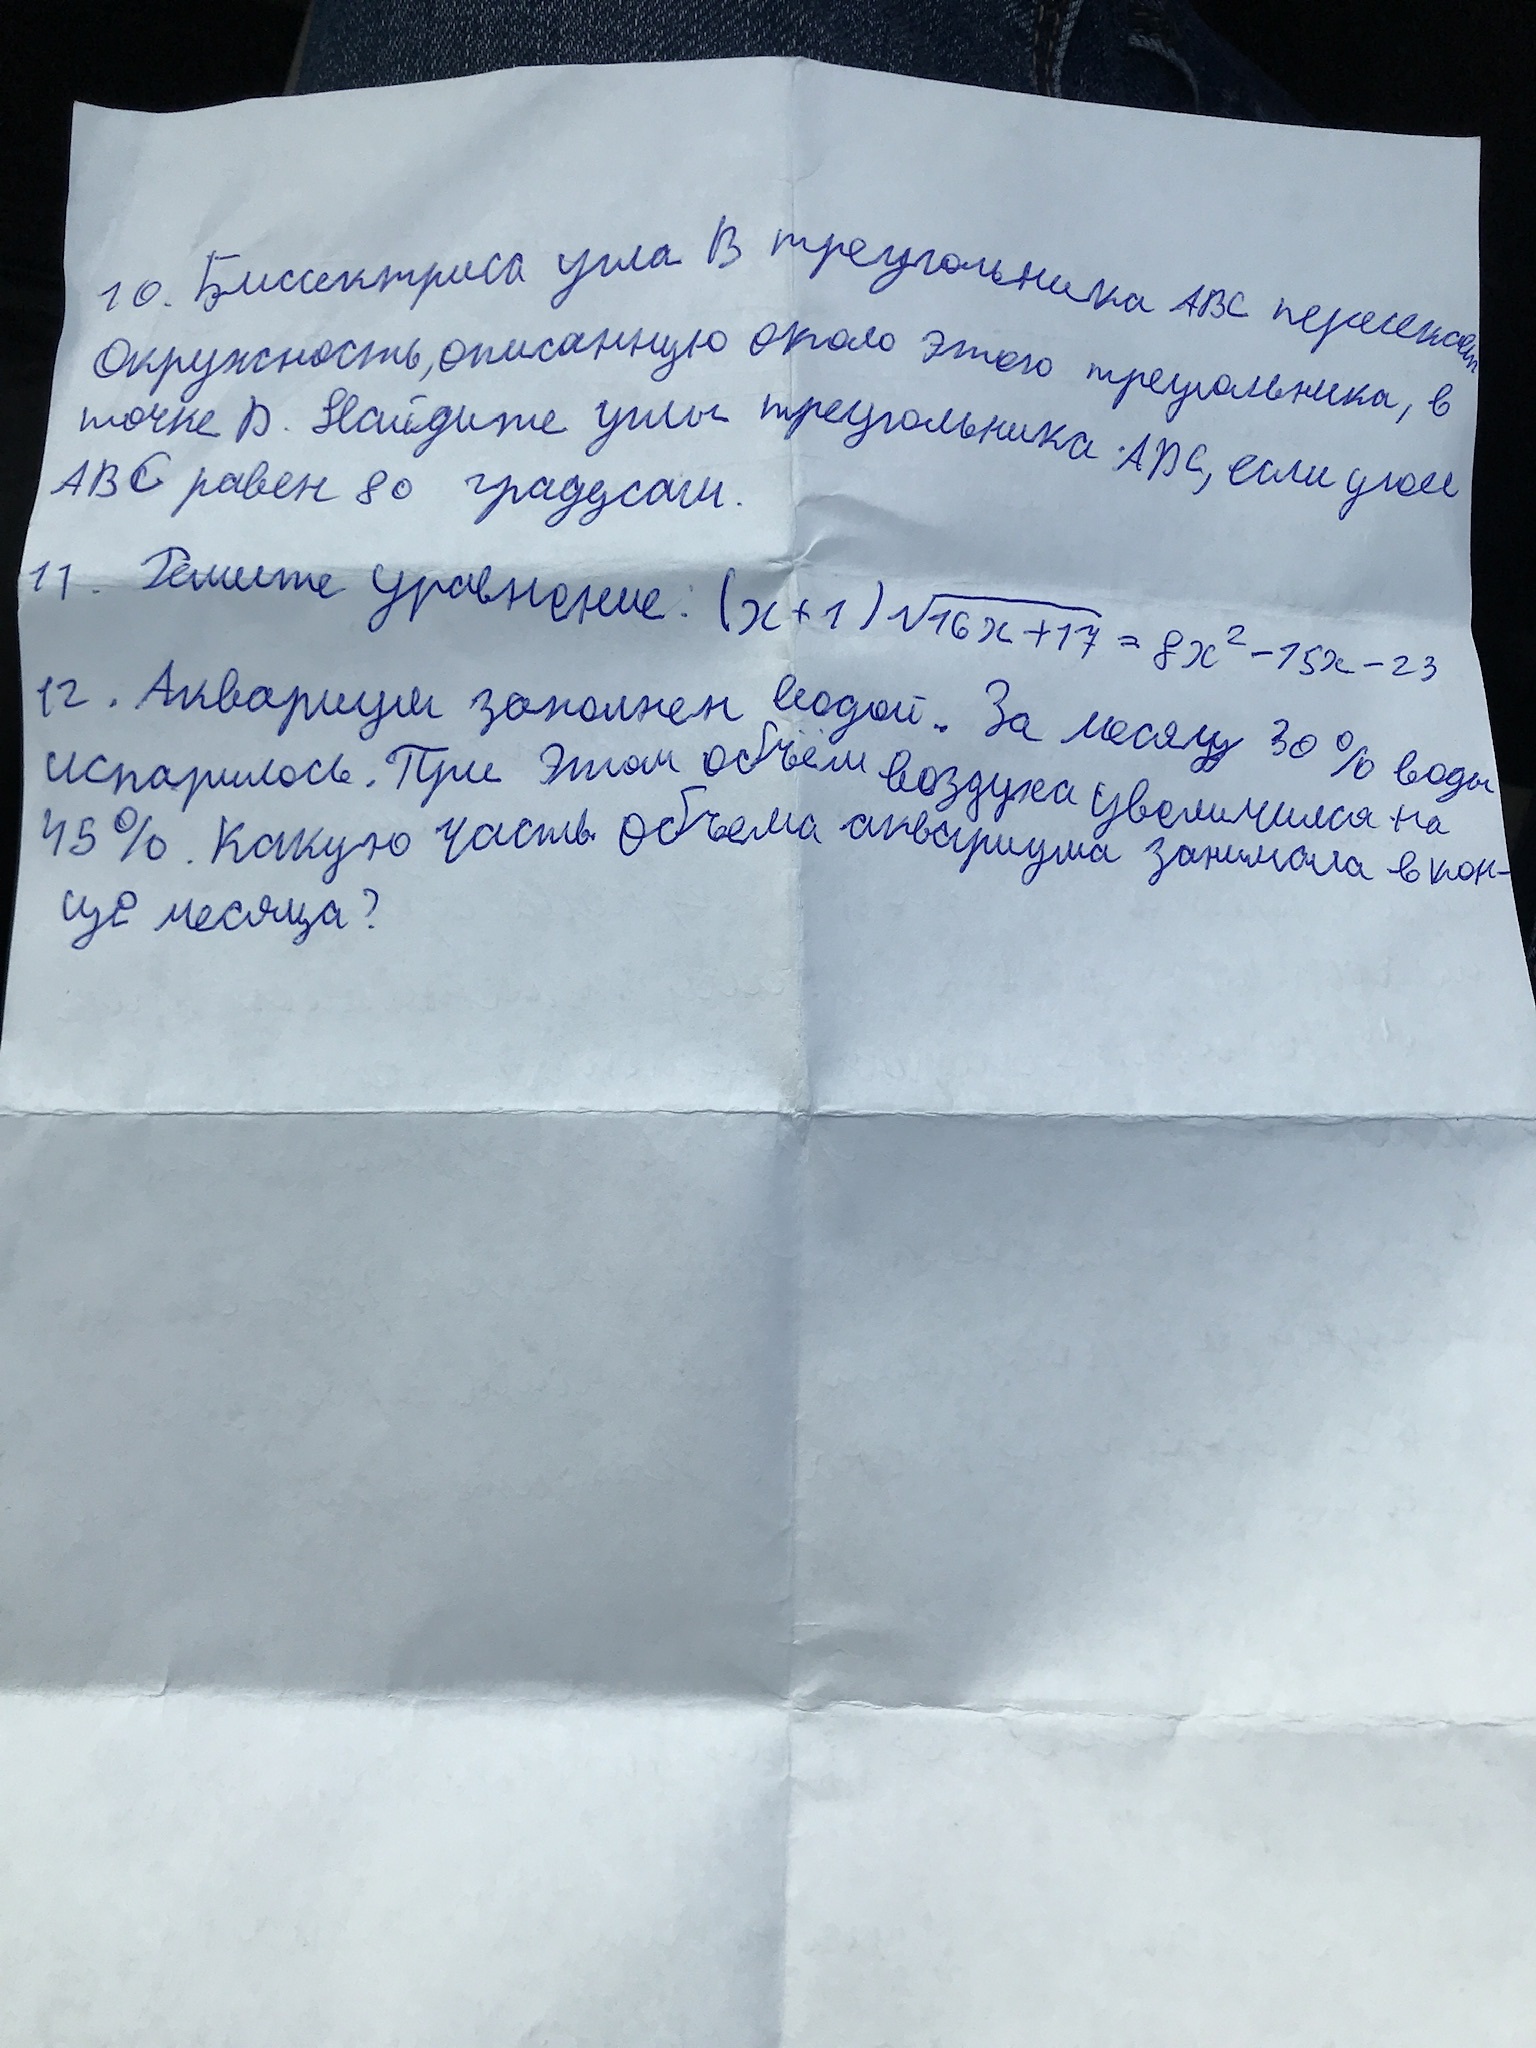 10. Биссектриса угла B треугольника ABC пересекает
окружность, описанную около этого треугольника, в
точке D. Найдите углы треугольника ADC, если угол
ABC равен 80 градусам.
11. Решите уравнение: (x+1)√16x+17 = 8x²-15x-23
12. Аквариум заполнен водой. За месяц 30% воды
испарилось. При этом объём воздуха увеличился на
45%. Какую часть объема аквариума занимала в кон-
це месяца?